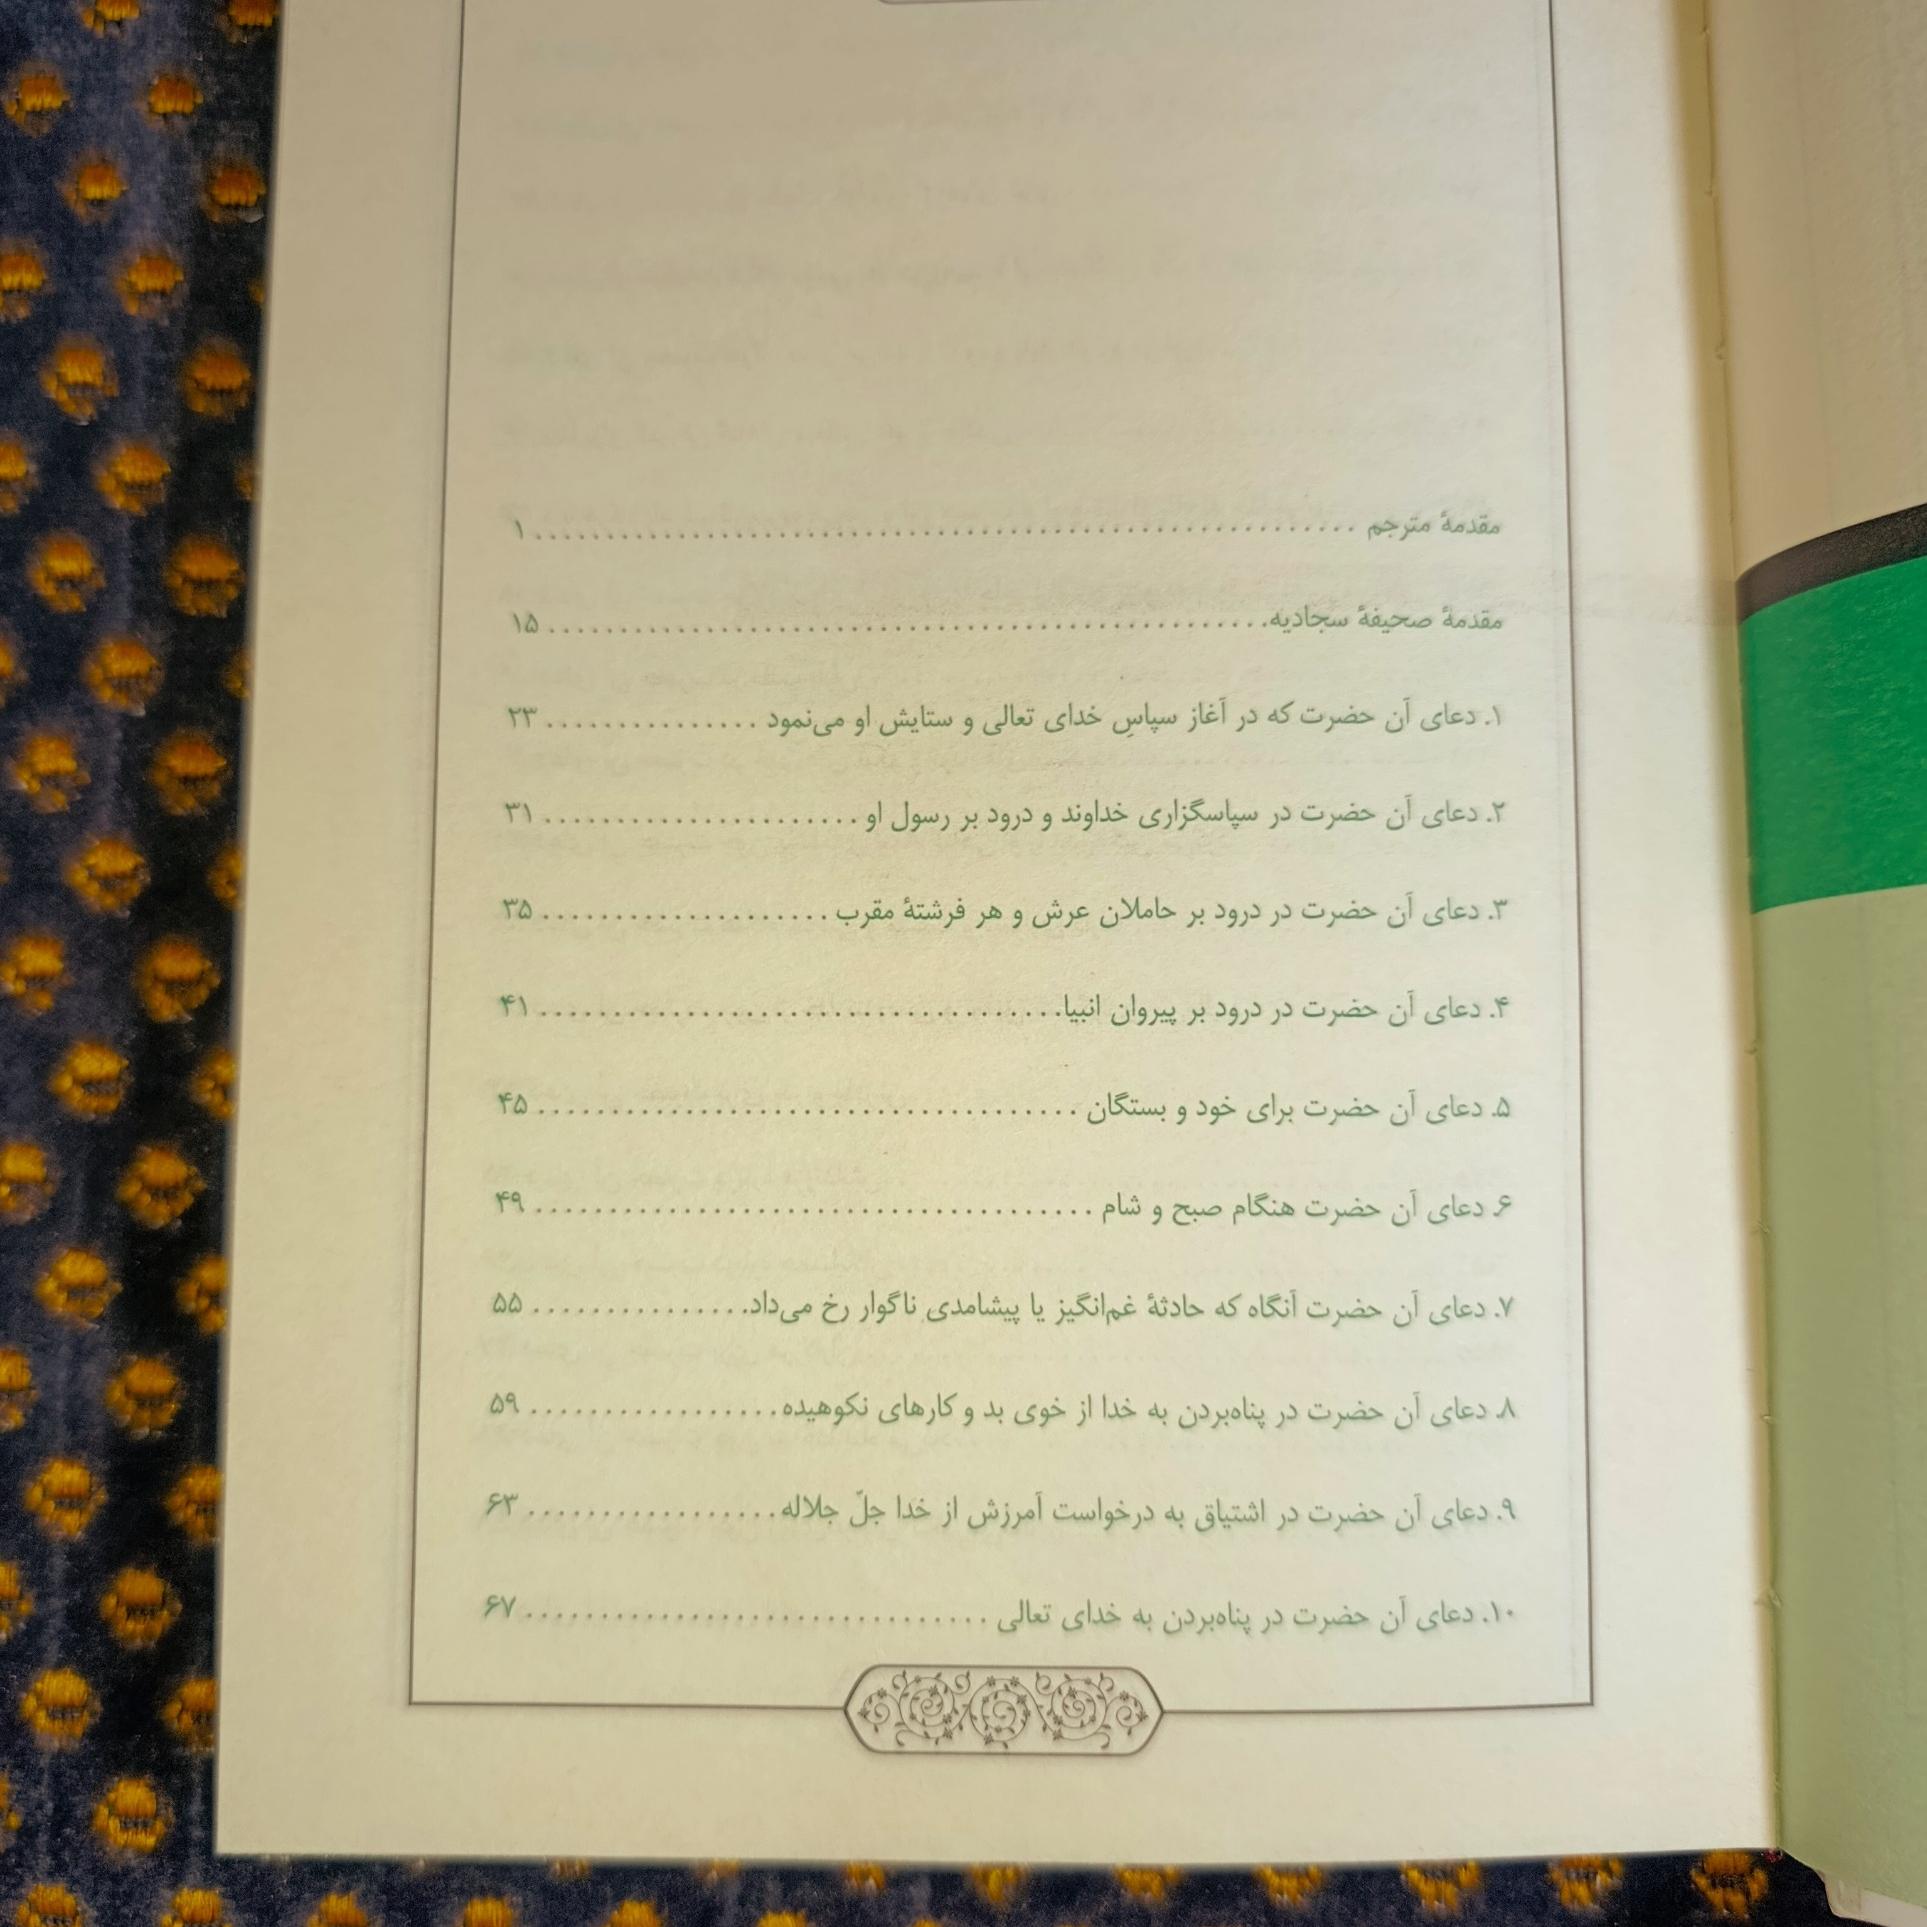 مقدمهٔ مترجم ........................................................ ۱
مقدمهٔ صحیفهٔ سجادیه................................................ ۱۵
۱. دعای آن حضرت که در آغاز سپاسِ خدای تعالی و ستایش او می‌نمود ............... ۲۳
۲. دعای آن حضرت در سپاسگزاری خداوند و درود بر رسول او ...................... ۳۱
۳. دعای آن حضرت در درود بر حاملان عرش و هر فرشتهٔ مقرب .................... ۳۵
۴. دعای آن حضرت در درود بر پیروان انبیا..................................... ۴۱
۵. دعای آن حضرت برای خود و بستگان ..................................... ۴۵
۶. دعای آن حضرت هنگام صبح و شام ...................................... ۴۹
۷. دعای آن حضرت آنگاه که حادثهٔ غم‌انگیز یا پیشامدی ناگوار رخ می‌داد................ ۵۵
۸. دعای آن حضرت در پناه‌بردن به خدا از خوی بد و کارهای نکوهیده.................. ۵۹
۹. دعای آن حضرت در اشتیاق به درخواست آمرزش از خدا جلّ جلاله.................. ۶۳
۱۰. دعای آن حضرت در پناه‌بردن به خدای تعالی ................................ ۶۷